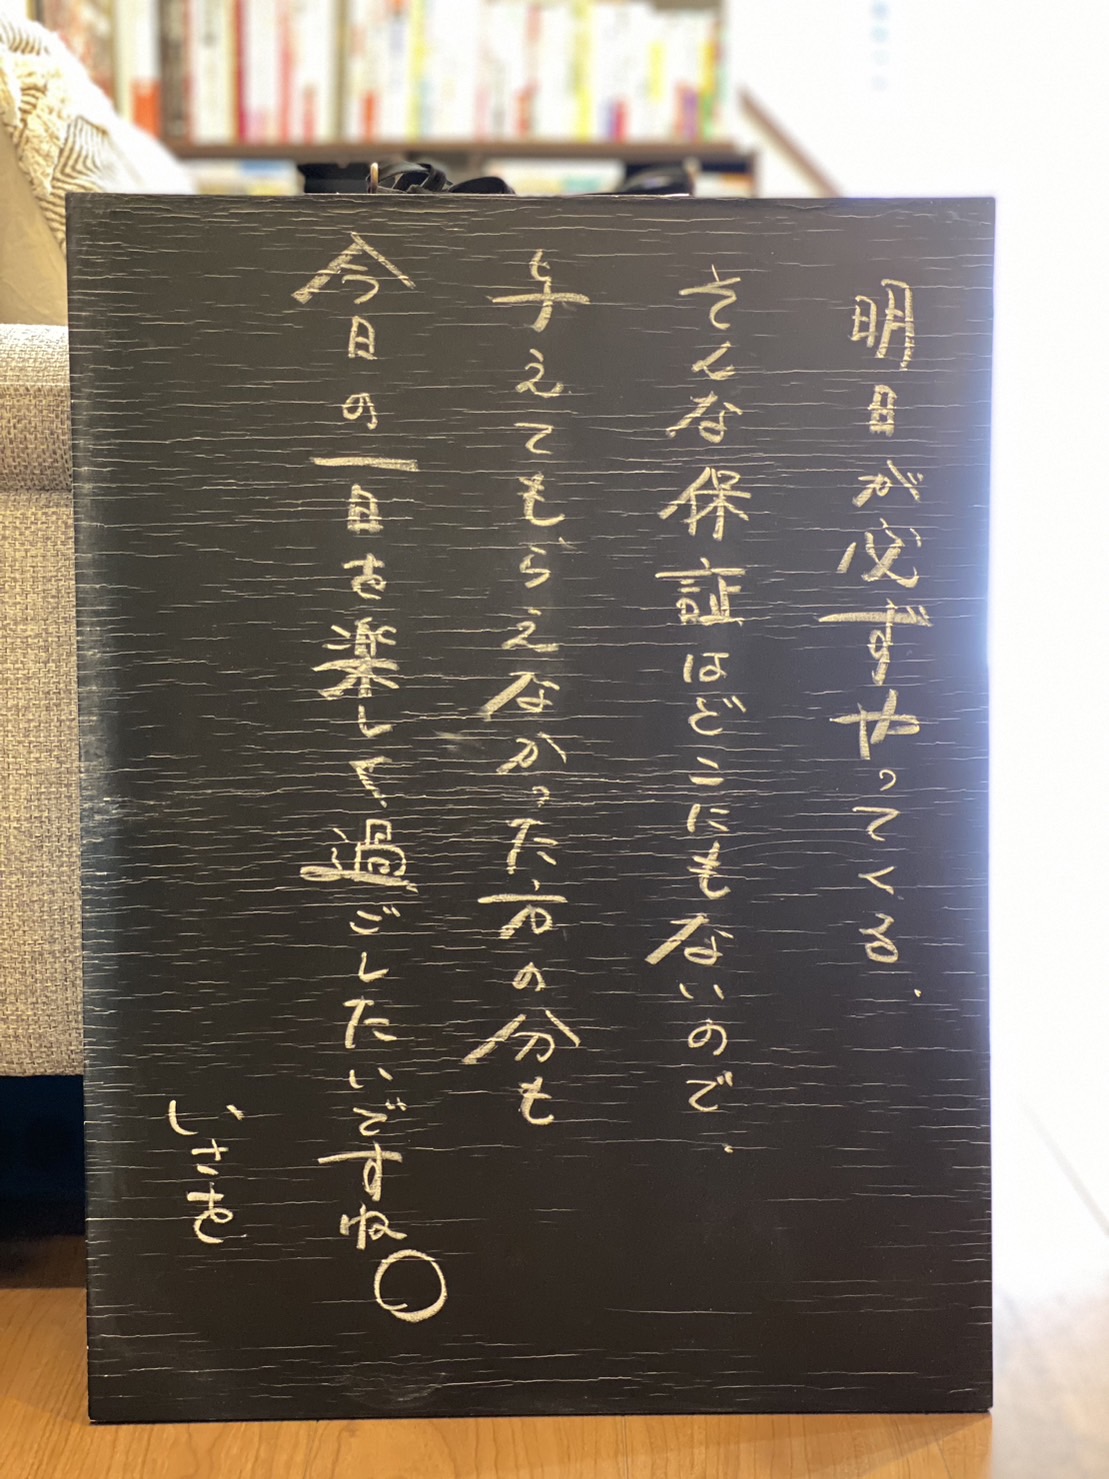 明日が必ずやってくる.
そんな保証はどこにもないので.
与えてもらえなかった方の分も
今日の一日を楽しく過ごしたいですね○
いさを